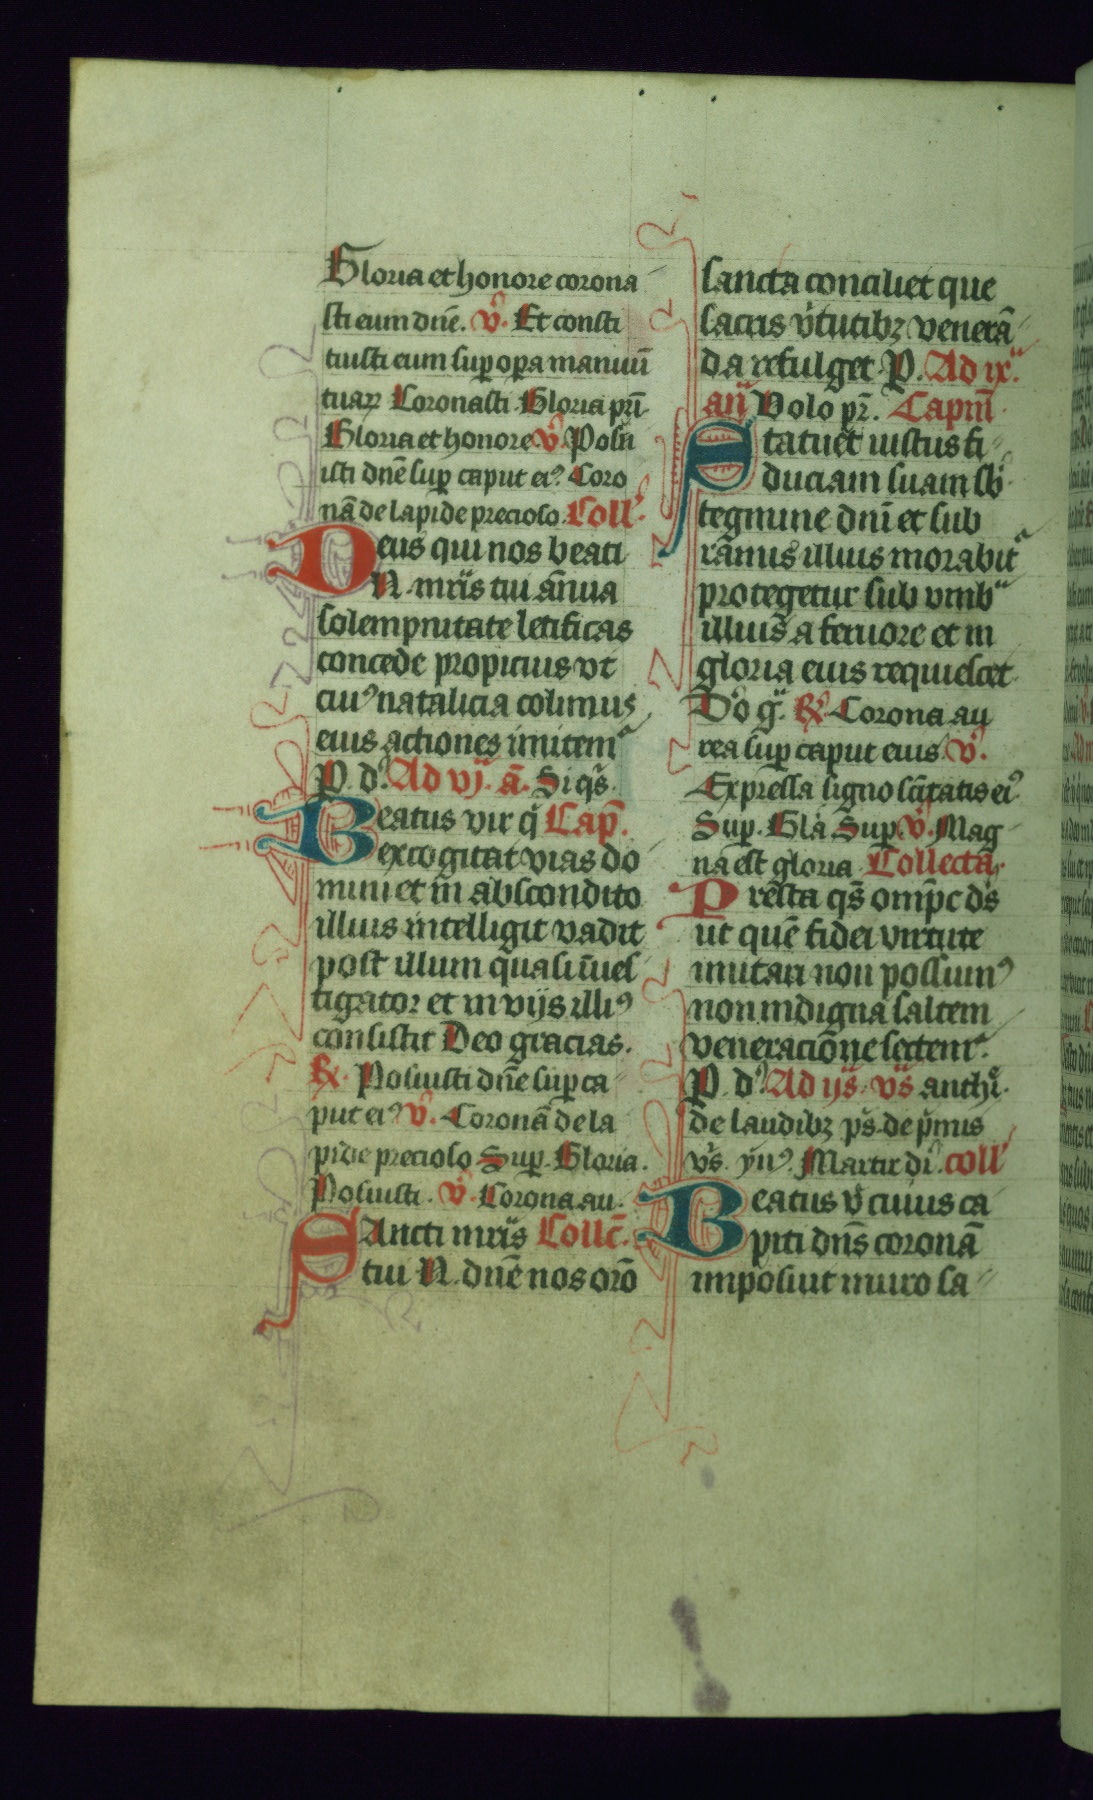 Gloria et honore corona
sti eum dnē. v̄. Et consti
tuisti eum sup opa manuū
tuarꝝ Coronasti. Gloria pri
Gloria et honore v̄. Posu
isti dnē sup caput eiꝰ Coro
nā de lapide precioso. Coll
Deus qui nos beati
N. mrīs tui ānua
solempnitate letificas
concede propicius vt
cuiꝰ natalicia colimus
eius actiones imitem
P. d. Ad vj. a. Si qs
Beatus vir q Cap.
excogitat vias do
mini et in abscondito
illius intelligit vadit
post illum quasi īves
tigator et in vijs illiꝰ
consistit Deo gracias.
℟. Posuisti dnē sup ca
put eiꝰ v̄. Coronā de la
pide precioso Sup. Gloria.
Posuisti. v̄. Corona au.
SAncti mrīs Collc̄.
tui N. dnē nos orō
sancta conciliet que
sacris v̄tutibꝫ venerā
da refulget P. Ad ix.
an Volo pr̄. Capm̄
Statuet iustus fi
duciam suam sb
tegmine dnī et sub
rāmis illius morabit
protegetur sub vmb
illius a feruore et in
gloria eius requiescet
Do g. ℟. Corona au
rea sup caput eius. v̄.
Expressa signo scītatis eiꝰ
Sup. Gla Sup. v̄. Mag
na est gloria Collecta.
Presta qs̄ omp̄c ds̄
ut quē fidei virtute
imitari non possumꝰ
non indigna saltem
veneraciōne sectem.
P. d. Ad ijs. vs̄ anthi.
de laudibꝫ ps. de p̄mis
vs. ynꝰ. Martir di. coll
Beatus v̄ cuius ca
piti dnīs coronā
imposuit muro sa